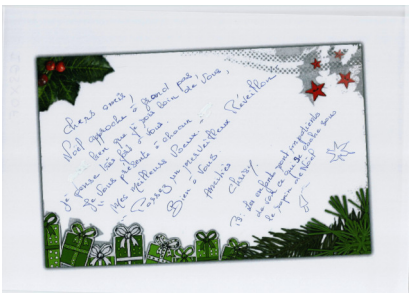 Chers amis,
Noël approche à grand pas,
bien que je sois loin de vous,
je pense très fort à vous.
Je vous présente à chacun
mes meilleurs vœux
Passez un merveilleux Réveillon
Bien à vous
Amitiés
Christy
les enfants sont impatients
de voir ce qui se cache sous
le sapin de Noël